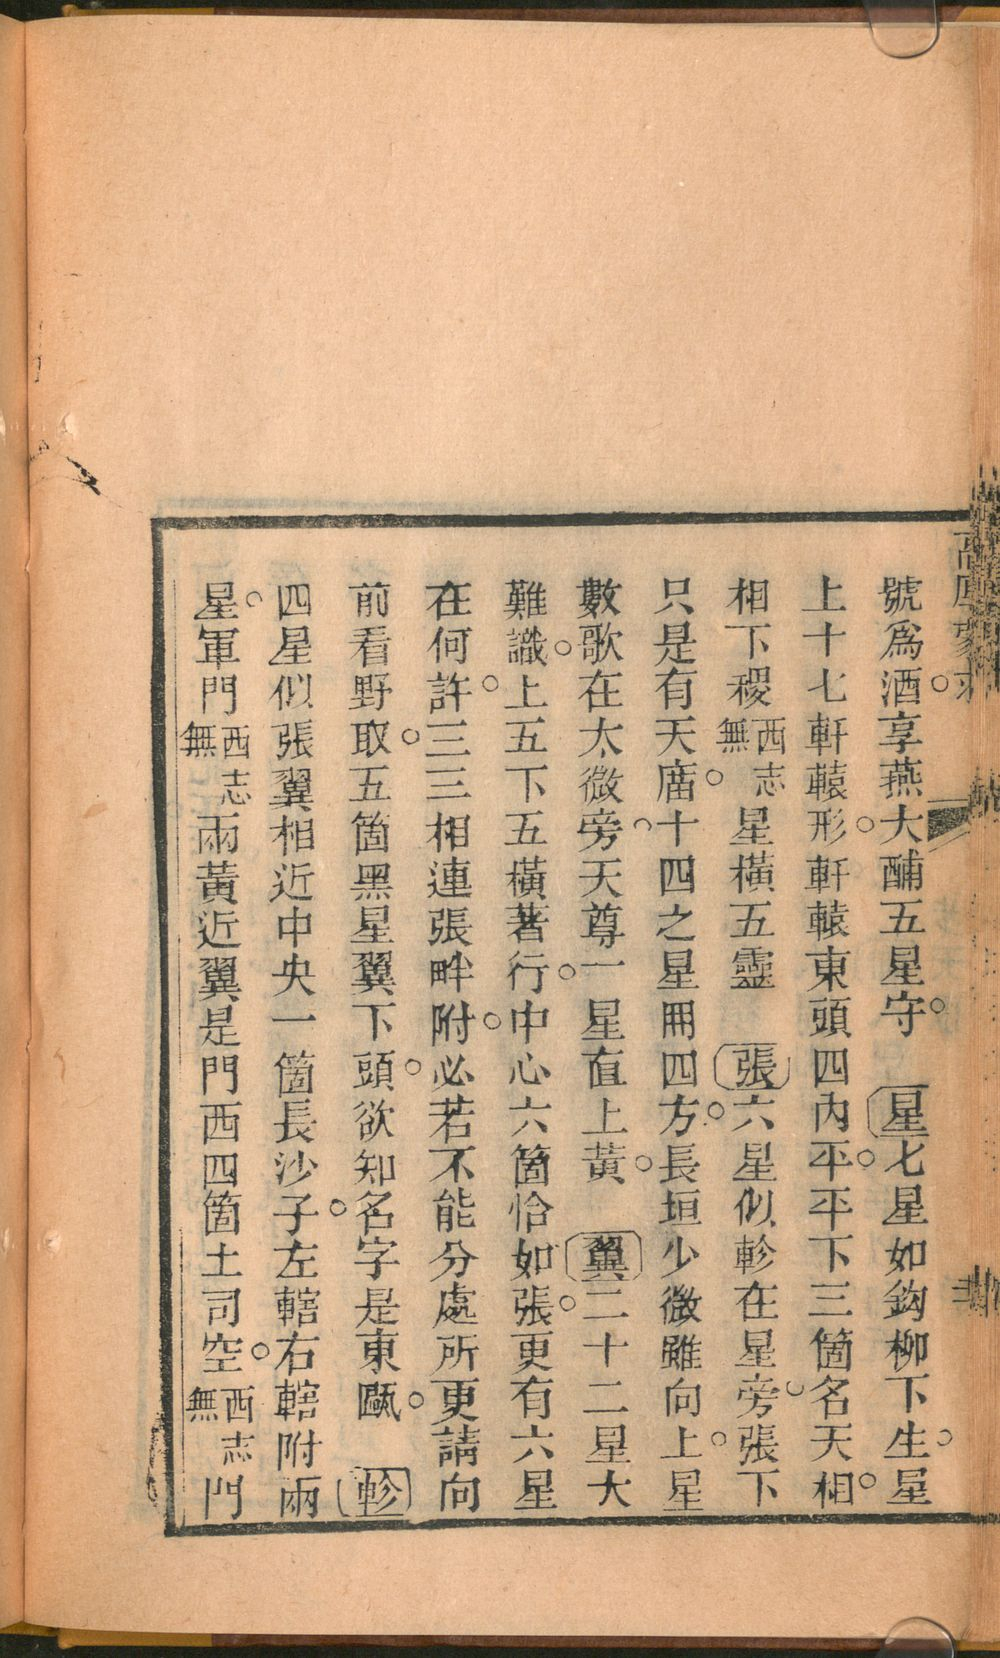 號爲酒。享燕大酺五星守。星七星如鈎柳下生。星
上十七軒轅形。軒轅東頭四內平。平下三箇名天相。
相下稷西志無星橫五靈 張六星似軫在星旁。張下
只是有天廟。十四之星冊四方。長垣少微雖向上。星
數歌在太微旁。天尊一星直上黃。翼二十二星大
難識。上五下五橫著行。中心六箇恰如張。更有六星
在何許。三三相連張畔附。必若不能分處所更請向
前看野取。五箇黑星翼下頭。欲知名字是東甌。軫
四星似張翼相近中央一箇長沙子。左轄右轄附兩
星。軍門西志無兩黃近翼是門西四箇土司空。西志無門